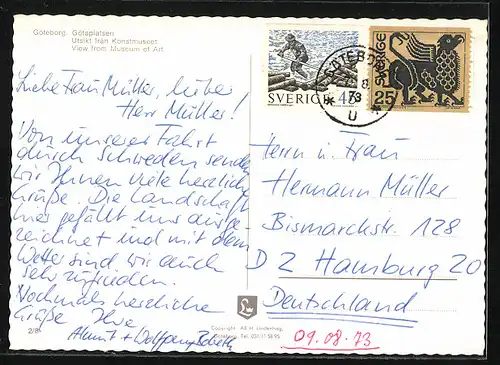 Göteborg. Götaplatsen
Utsikt från Konstmuseet.
View from Museum of Art.
Liebe Frau Müller, lieber
Herr Müller!
Von unserer Fahrt
durch Schweden senden
wir Ihnen viele herzliche
Grüße. Die Landschaft
hier gefällt uns ausge-
zeichnet und mit dem
Wetter sind wir auch
sehr zufrieden.
Nochmals herzliche
Grüße Ihre
+ Wolfgang
SVERIGE 45
GÖTEBORG
8
73
U
SVERIGE
25
Herrn u. Frau
Hermann Müller
Bismarckstr. 128
D 2 Hamburg 20
Deutschland
09.08.73
Copyright: AB H. Lindenhag,
Göteborg. Tel.